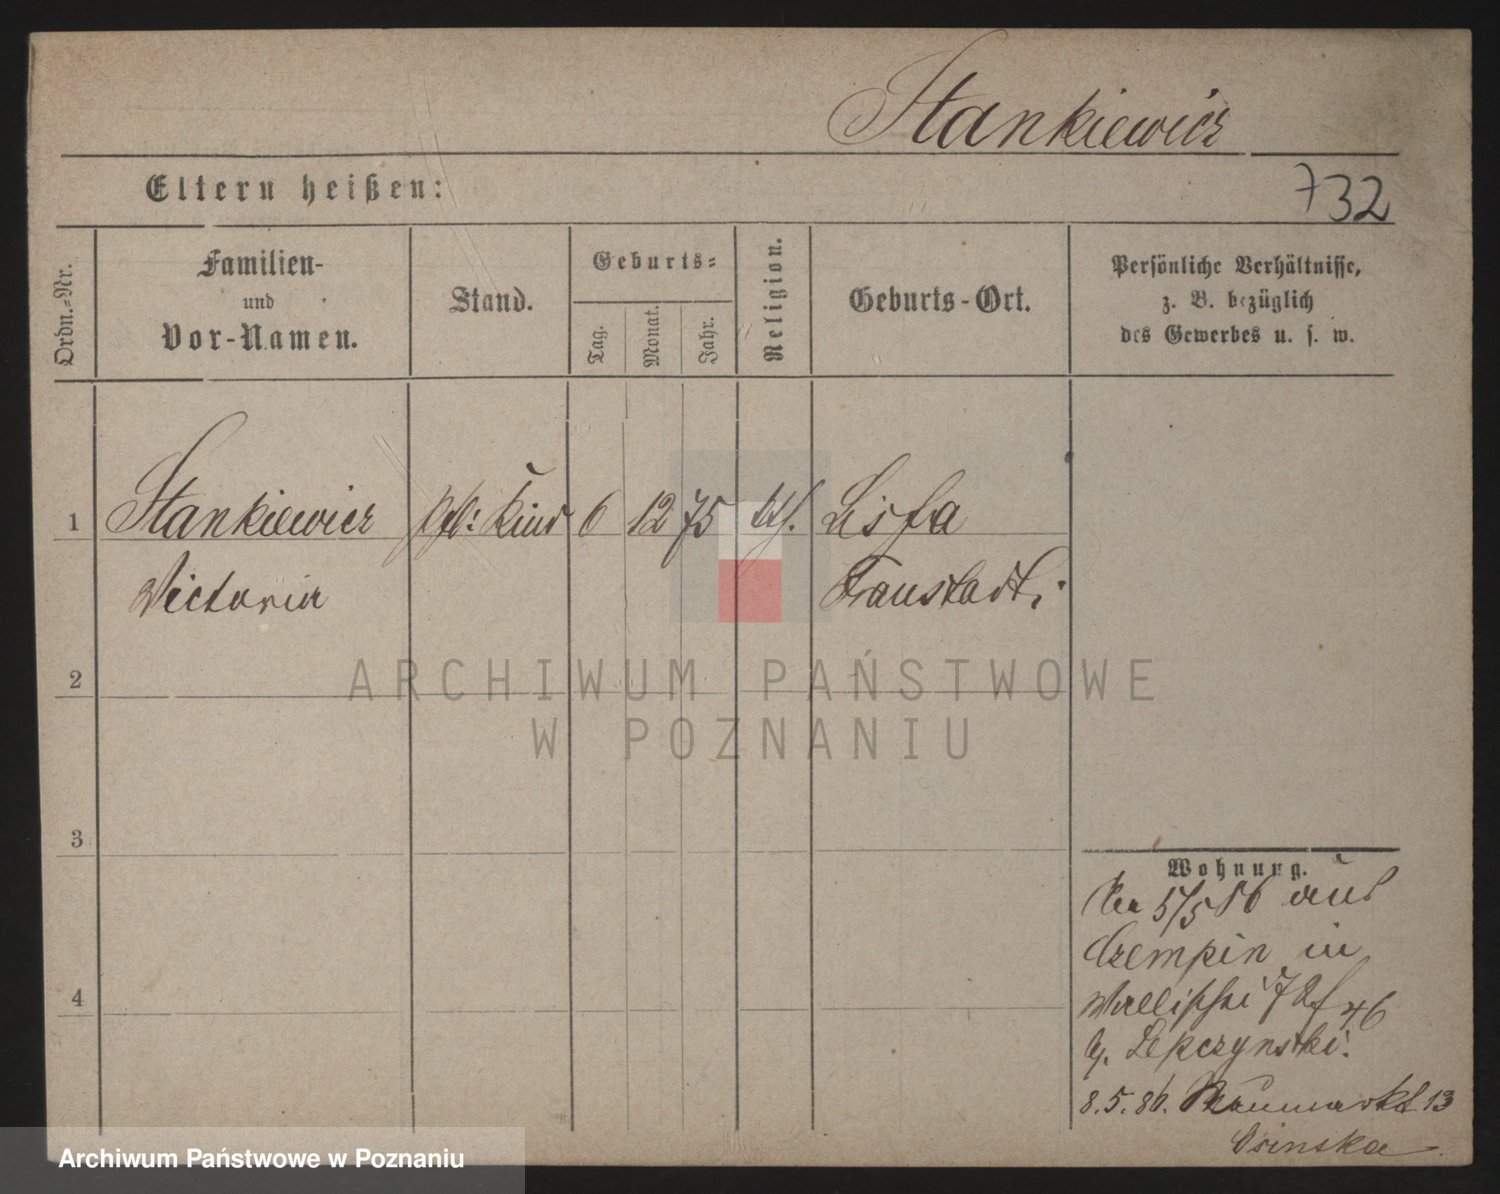 Stankiewicz
Eltern heißen:
732
Ordn.-Nr.
Familien-
und
Vor-Namen.
Stand.
Geburts-
Tag.
Monat.
Jahr.
Religion.
Geburts-Ort.
Persönliche Verhältnisse,
z. B. bezüglich
des Gewerbes u. s. w.
1
Stankiewicz
Kind
6
12
75
kth.
Lissa
Victoria
Fraustadt
2
3
4
Wohnung.
5/5 86 aus
Czempin in
Wallischei
Lepczynski.
8.5.86. Neumarkt 13
Osinska
ARCHIWUM PAŃSTWOWE
W POZNANIU
Archiwum Państwowe w Poznaniu